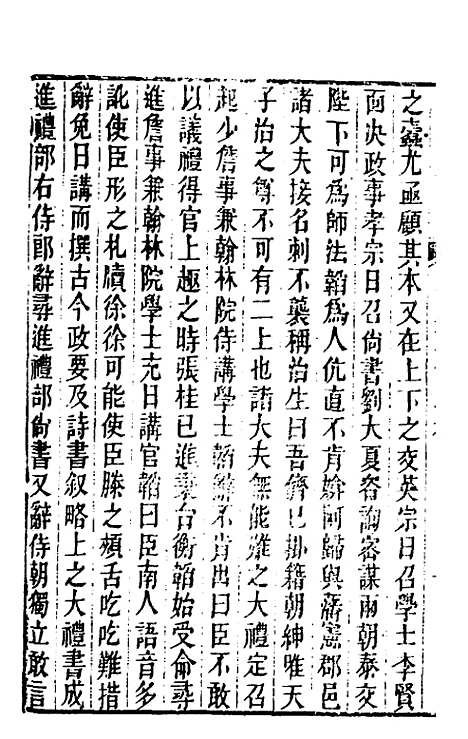 之蠧尤亟顧其本又在上下之交英宗日召學士李賢
面决政事孝宗日召尚書劉大夏咨詢審謀兩朝泰交
陛下可爲師法韜爲人伉直不肯媕阿歸與藩憲郡邑
諸大夫接名刺不襲稱治生曰吾儕已掛籍朝紳唯天
子治之尊不可有二上也諸大夫無能難之大禮定召
起少詹事兼翰林院侍講學士韜辭不肯出曰臣不敢
以議禮得官上趣之時張桂已進秉台衡韜始受命尋
進詹事兼翰林院學士充日講官韜曰臣南人語音多
訛使臣形之札牘徐徐可能使臣滕之頰舌吃吃難措
辭免日講而撰古今政要及詩書叙略上之大禮書成
進禮部右侍郎辭尋進禮部尚書又辭侍朝獨立敢言